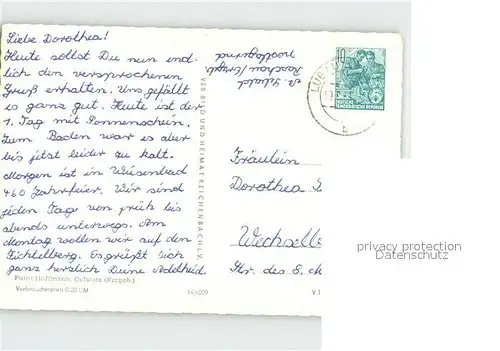 Liebe Dorothea!
Heute sollst Du nun end-
lich den versprochenen
Gruß erhalten. Uns gefällt
es ganz gut. Heute ist der
1. Tag mit Sonnenschein.
Zum Baden war es aber
bis jetzt leider zu kalt.
Morgen ist in Wiesenbad
460 Jahrfeier. Wir sind
jeden Tag von früh bis
abends unterwegs. Am
Montag wollen wir auf den
Fichtelberg. Es grüßt sich
ganz herzlich Deine Adelheid
Foto: Hoffmann, Oelsnitz (Erzgeb.)
Verbraucherpreis 0.20 DM
14/2009
V 1
VEB BILD UND HEIMAT REICHENBACH i. V.
10
DEUTSCHE
DEMOKRATISCHE REPUBLIK
b
Fräulein
Dorothea
Wechsel
Str. des 8. M
privacy protection
Datenschutz